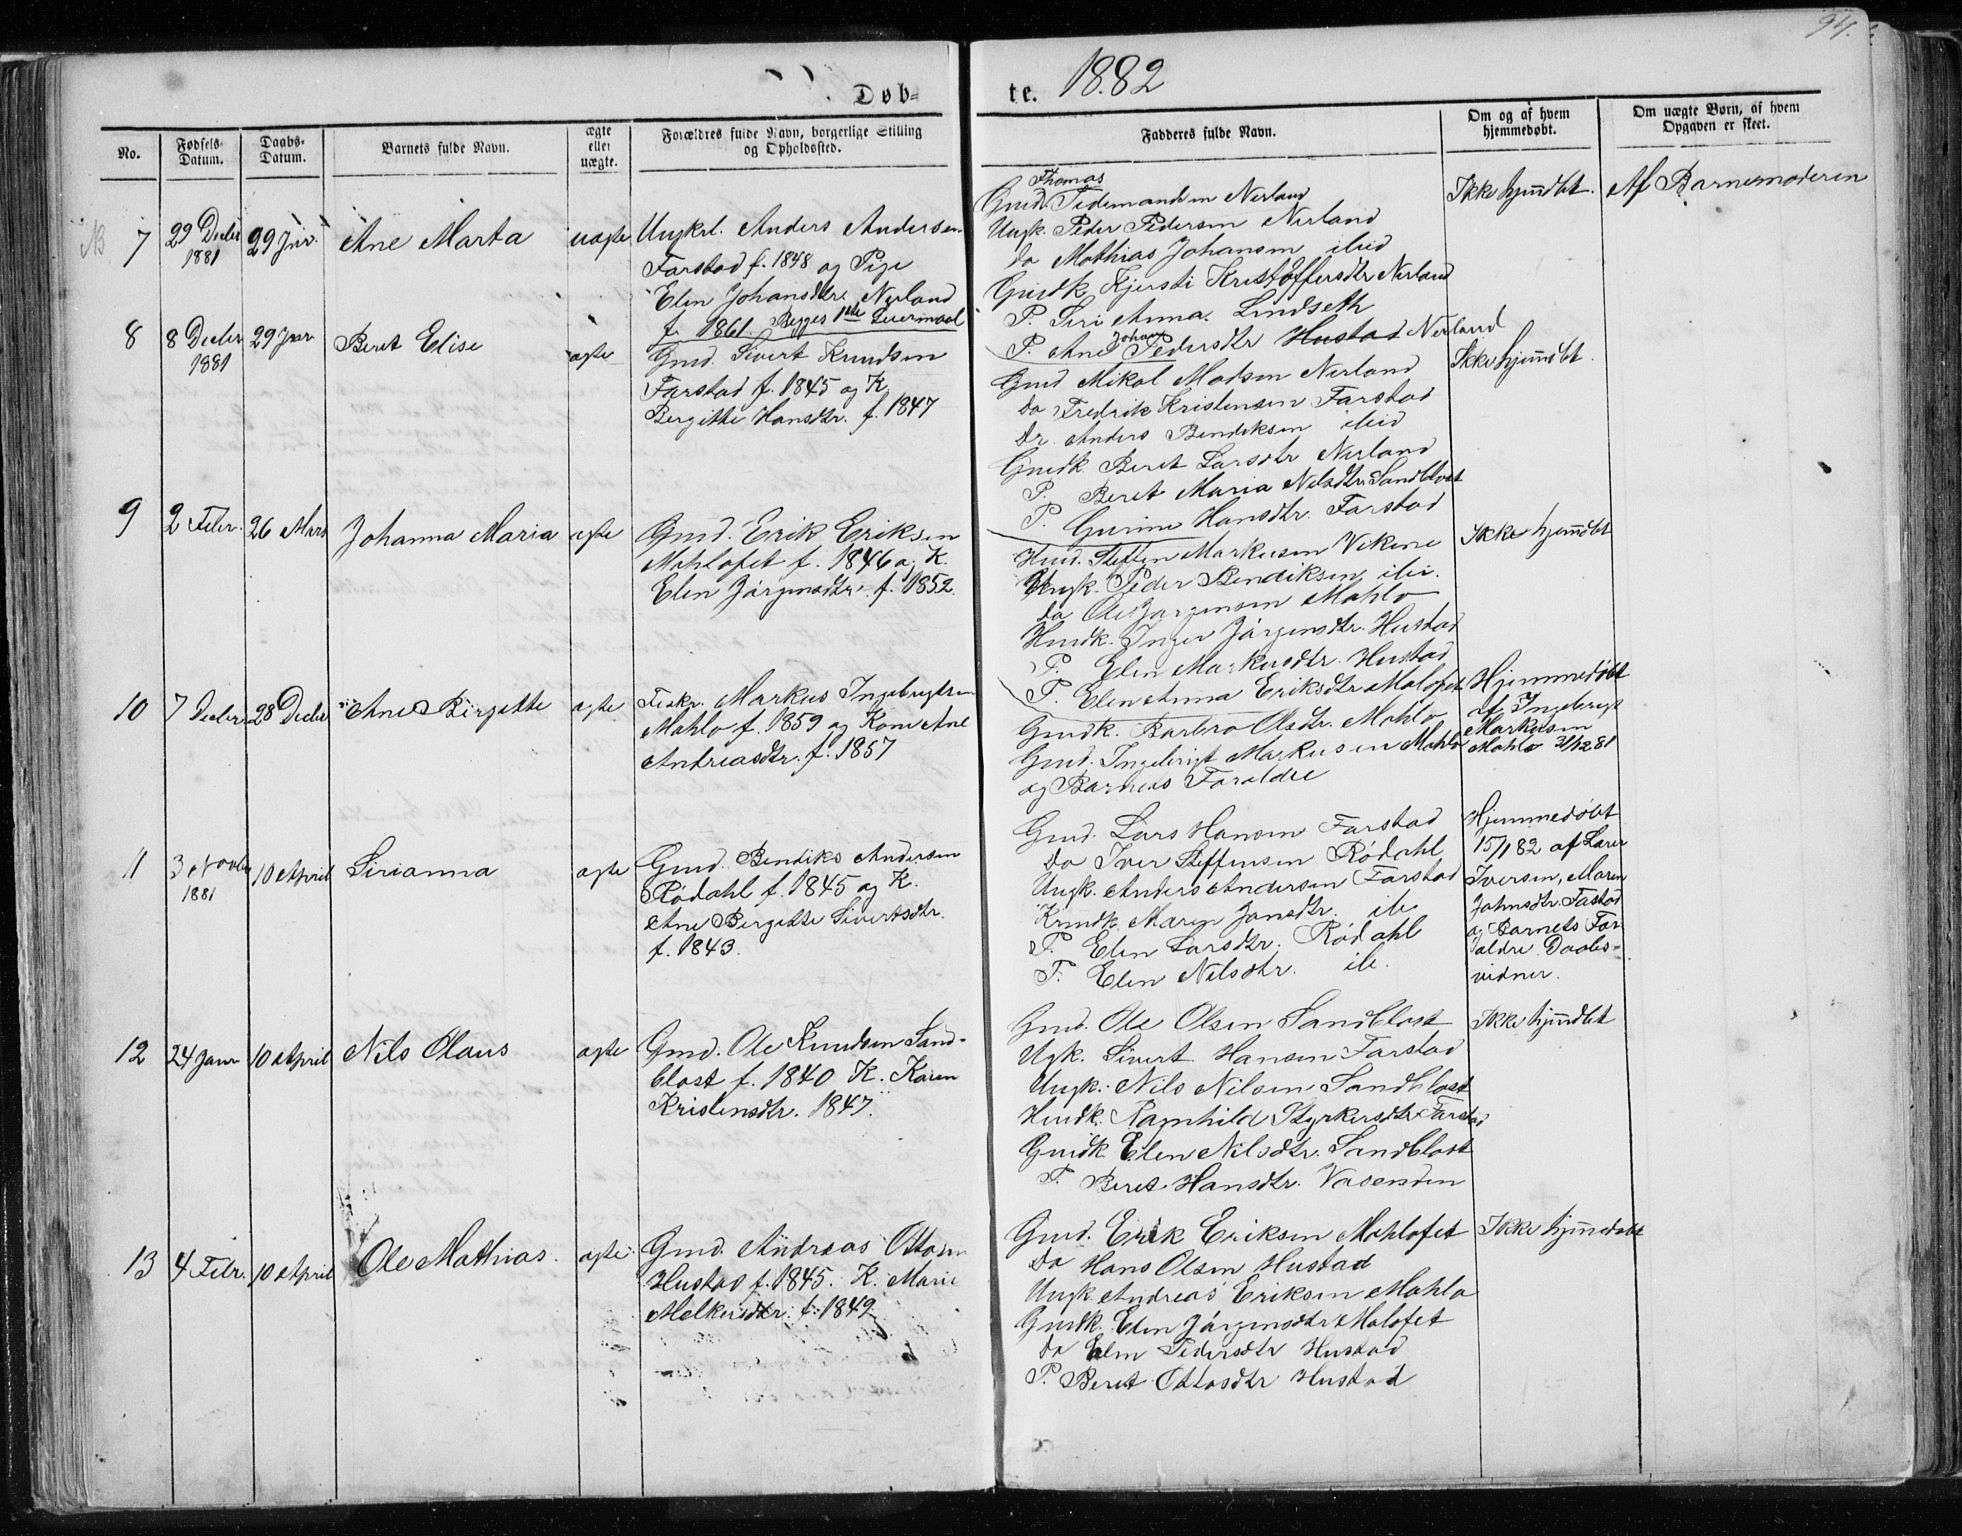 94.
Døb-
te. 1882
No.
Fødsels-
Datum.
Daabs-
Datum.
Barnets fulde Navn.
ægte
eller
uægte.
Forældres fulde Navn, borgerlige Stilling
og Opholdssted.
Fadderes fulde Navn.
Om og af hvem
hjemmedøbt.
Om uægte Børn, af hvem
Opgaven er skeet.
NB 7
29 Decbr
1881
29 Jnr.
Ane Marta
uægte
Ungkrl. Anders Andersen
Farstad f. 1848 og Pige
Elen Johansdtr. Nerland
f. 1861. Begges 1ste Leiermaal
Thomas
Gmd. Tidemandsen Nerland
Ungk. Peder Pedersen Nerland
do Mathias Johansen ibid
Gmdk. Kjersti Kristoffersdtr Nerland
P. Siri Anna. Lindseth
P. Ane Johan Pedersdtr Hustad Nerland
Ikke hjmdbt.
Af Barnemoderen
8
8 Decbr
1881
29 Jnr
Beret Elise
ægte
Gmd. Sivert Knudsen
Farstad f. 1845 og K.
Bergitte Hansdtr. f. 1847
Gmd Mikal Madsen Nerland
do Fredrik Kristensen Farstad
Dr. Anders Bendiksen ibid
Gmdk Beret Larsdtr Nerland
P. Beret Maria Nilsdtr. Sandblost
P. Gurine Hansdtr. Farstad
Ikke hjmdbt.
9
2 Febr.
26 Mars
Johanna Maria
ægte
Gmd. Erik Eriksen
Mahlofet f. 1846 og K.
Elen Jörgensdtr. f. 1852.
Hmd. Steffen Markusen Vikene
Ungk. Peder Bendiksen ibi.
do Ole Jörgensen Mahlo
Hmdk. Inger Jörgensdtr. Hustad
P. Elen Markusdtr. Hustad
P. Elen Anna Eriksdtr Malofet
Ikke hjemdbt
10
7 Decbr
28 Decbr
Ane Birgitte
ægte
Fiskr. Markus Ingebrigtsen
Mahlo f. 1859 og Kone Ane
Andreasdtr. f. 1857
Gmdk. Barbro Olsdtr. Mahlo
Gmd. Ingebrigt Markusen Mahlo
og Barnets Foraldre
Hjemmedøbt
af Ingebrigt
Markusen
Mahlo 31/12 81
11
3 Novbr
1881
10 April
Sirianna
ægte
Gmd. Bendiks Andersen
Rödahl f. 1845 og K.
Ane Bergitte Sivertsdtr.
f. 1843.
Gmd. Lars Hansen Farstad
do Iver Steffensen Rödahl
Ungk. Anders Andersen Farstad
Krmdk. Maren Jansdtr. ib
P. Elen Larsdtr. Rödahl
P. Elen Nilsdtr. ib.
Hjemmedöbt
15/1 82 af Lærer
Iversen, Maren
Jahnsdtr. Fastad
og Barnets For-
ældre Daabs-
vidner.
12
24 Janr
10 April
Nils Olaus
ægte
Gmd. Ole Knudsen Sand-
blost f. 1840 K. Karen
Kristensdtr. 1847.
Gmd. Ole Olsen Sandblost
Ugk. Sivert Hansen Farstad
Ungk. Nils Nilsen Sandblost
Hmdk. Ragnhild Styrkersdtr. Farstad
Gmdk Elen Nilsdtr. Sandblost
P. Beret Hansdtr. Vasenden
Ikke hjmdbt
13
4 Febr.
10 April
Ole Mathias.
ægte
Gmd. Andreas Ottosen
Hustad f. 1845. K. Marie
Melkersdtr. f. 1849
Gmd. Erik Eriksen Mahlofet
do Hans Olsen Hustad
Ungk Andreas Eriksen Mahlo
Gmdk. Elen Jörgensdtr Malofet
do Elen Pedersdtr Hustad
P. Beret Ottosdtr Hustad
Ikke hjmedøbt